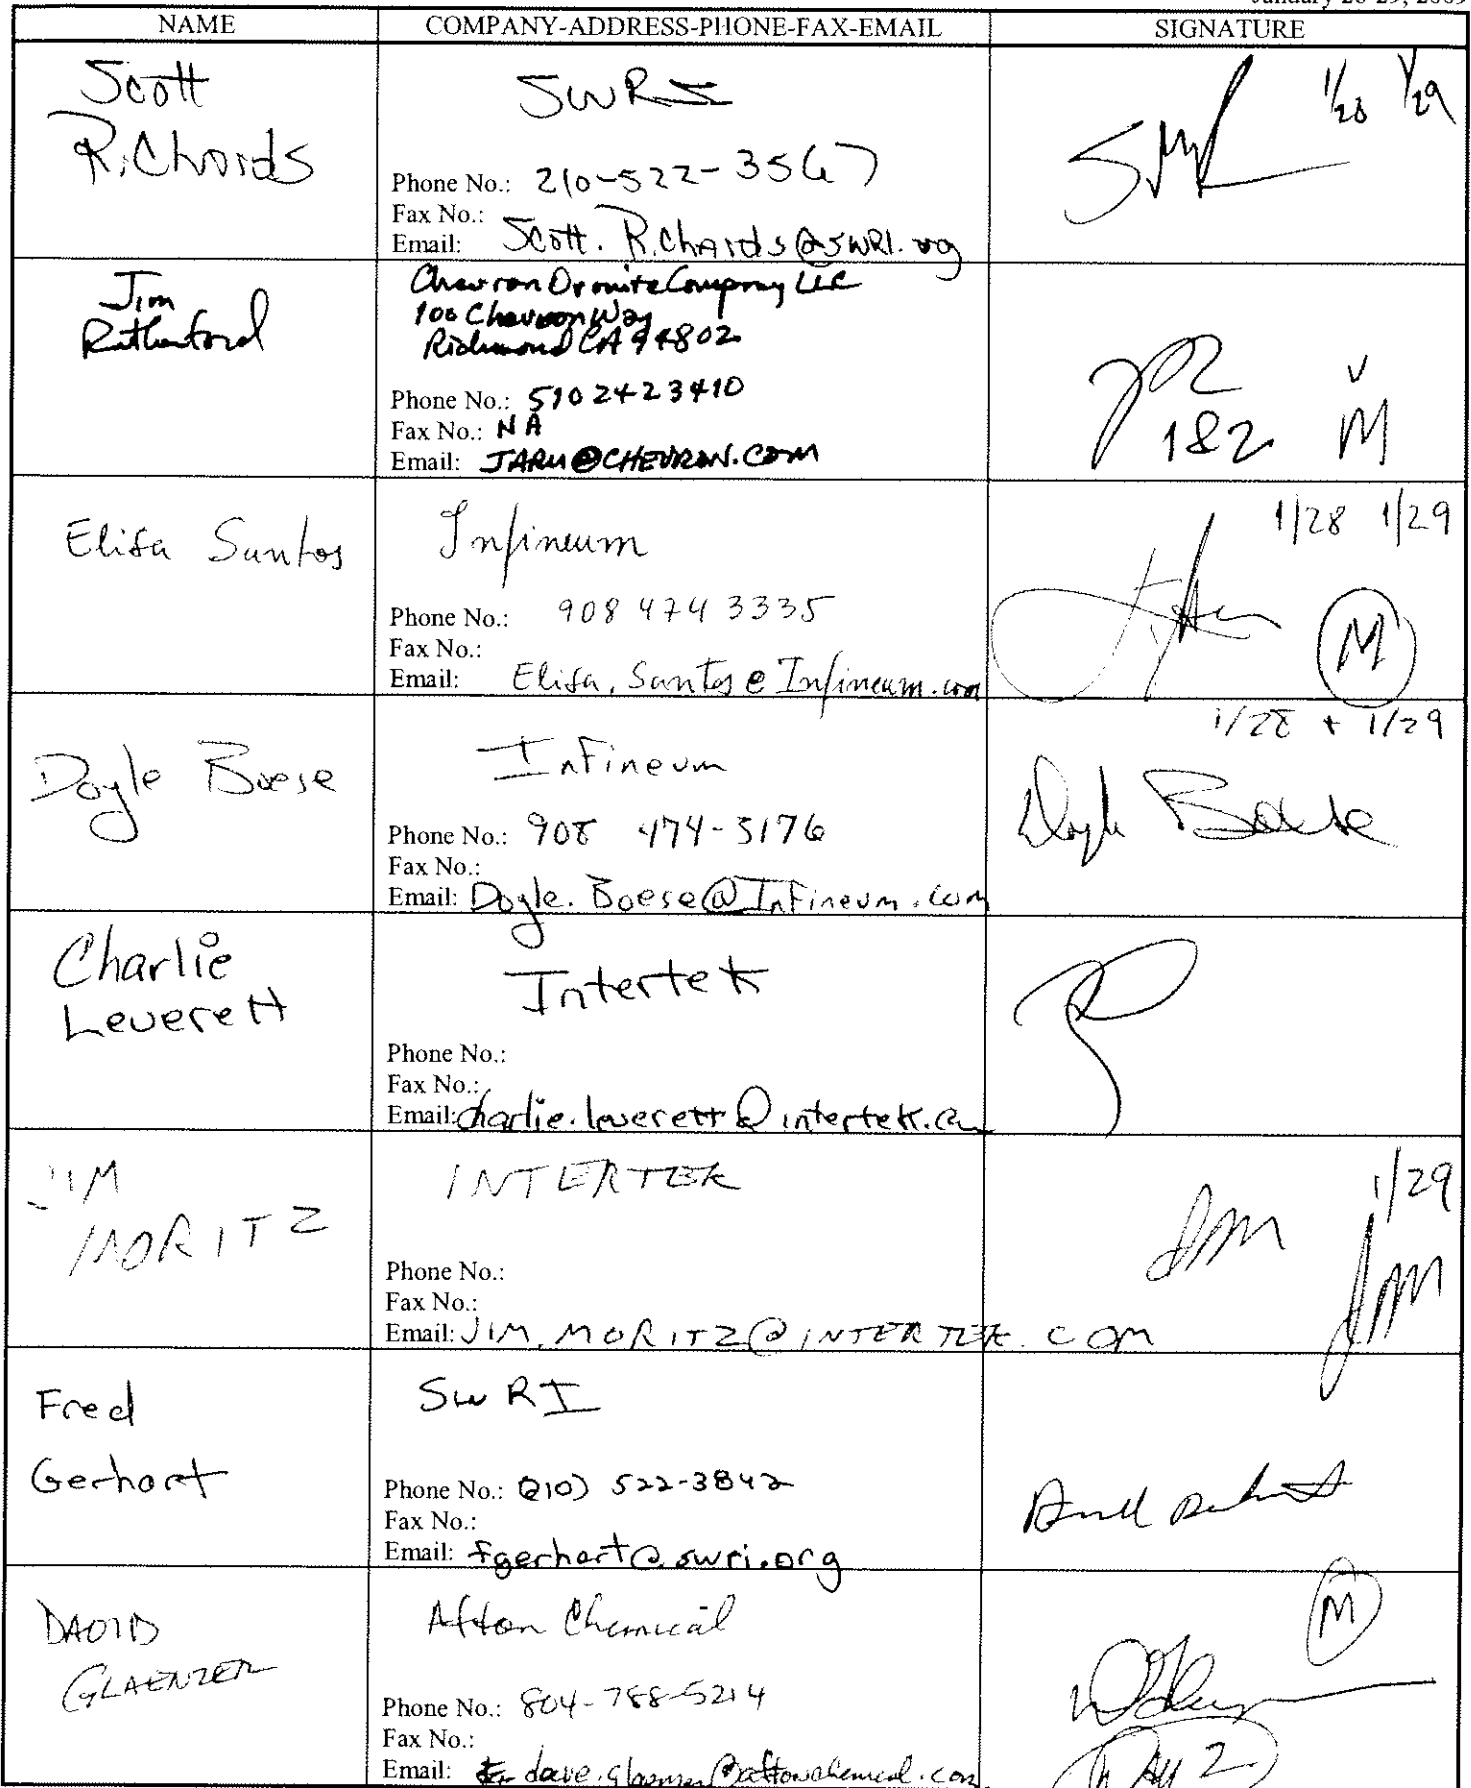 NAME
COMPANY-ADDRESS-PHONE-FAX-EMAIL
SIGNATURE
Scott
Richards
SWRI
Phone No.: 210-522-3567
Fax No.:
Email: Scott.Richards@swRI.org
1/28 1/29
Jim
Rutherford
Chevron Oronite Company LLC
100 Chevron Way
Richmond CA 94802
Phone No.: 510 242 3410
Fax No.: NA
Email: JARU@CHEVRON.COM
1&2
M
Elisa Santos
Infineum
Phone No.: 908 474 3335
Fax No.:
Email: Elisa.Santos@Infineum.com
1/28 1/29
M
Doyle Boese
Infineum
Phone No.: 908 474-3176
Fax No.:
Email: Doyle.Boese@Infineum.com
1/28 + 1/29
Doyle Boese
Charlie
Leverett
Intertek
Phone No.:
Fax No.:
Email: charlie.leverett@intertek.com
JIM
MORITZ
INTERTEK
Phone No.:
Fax No.:
Email: JIM.MORITZ@INTERTEK.COM
JM
1/29
JM
Fred
Gerhart
SwRI
Phone No.: (210) 522-3842
Fax No.:
Email: fgerhart@swri.org
DAVID
GLAENZER
Afton Chemical
Phone No.: 804-788-5214
Fax No.:
Email: dave.glaenzer@aftonchemical.com
M
Day 2